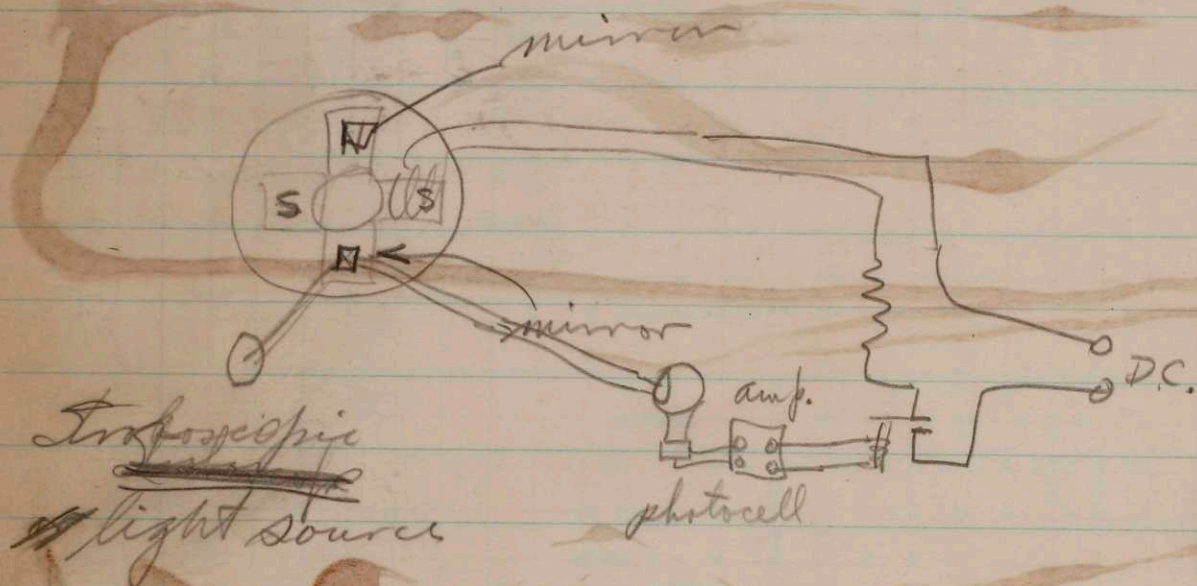 mirror
N
S
S
mirror
D.C.
amp.
Stroboscopic
light source
photocell